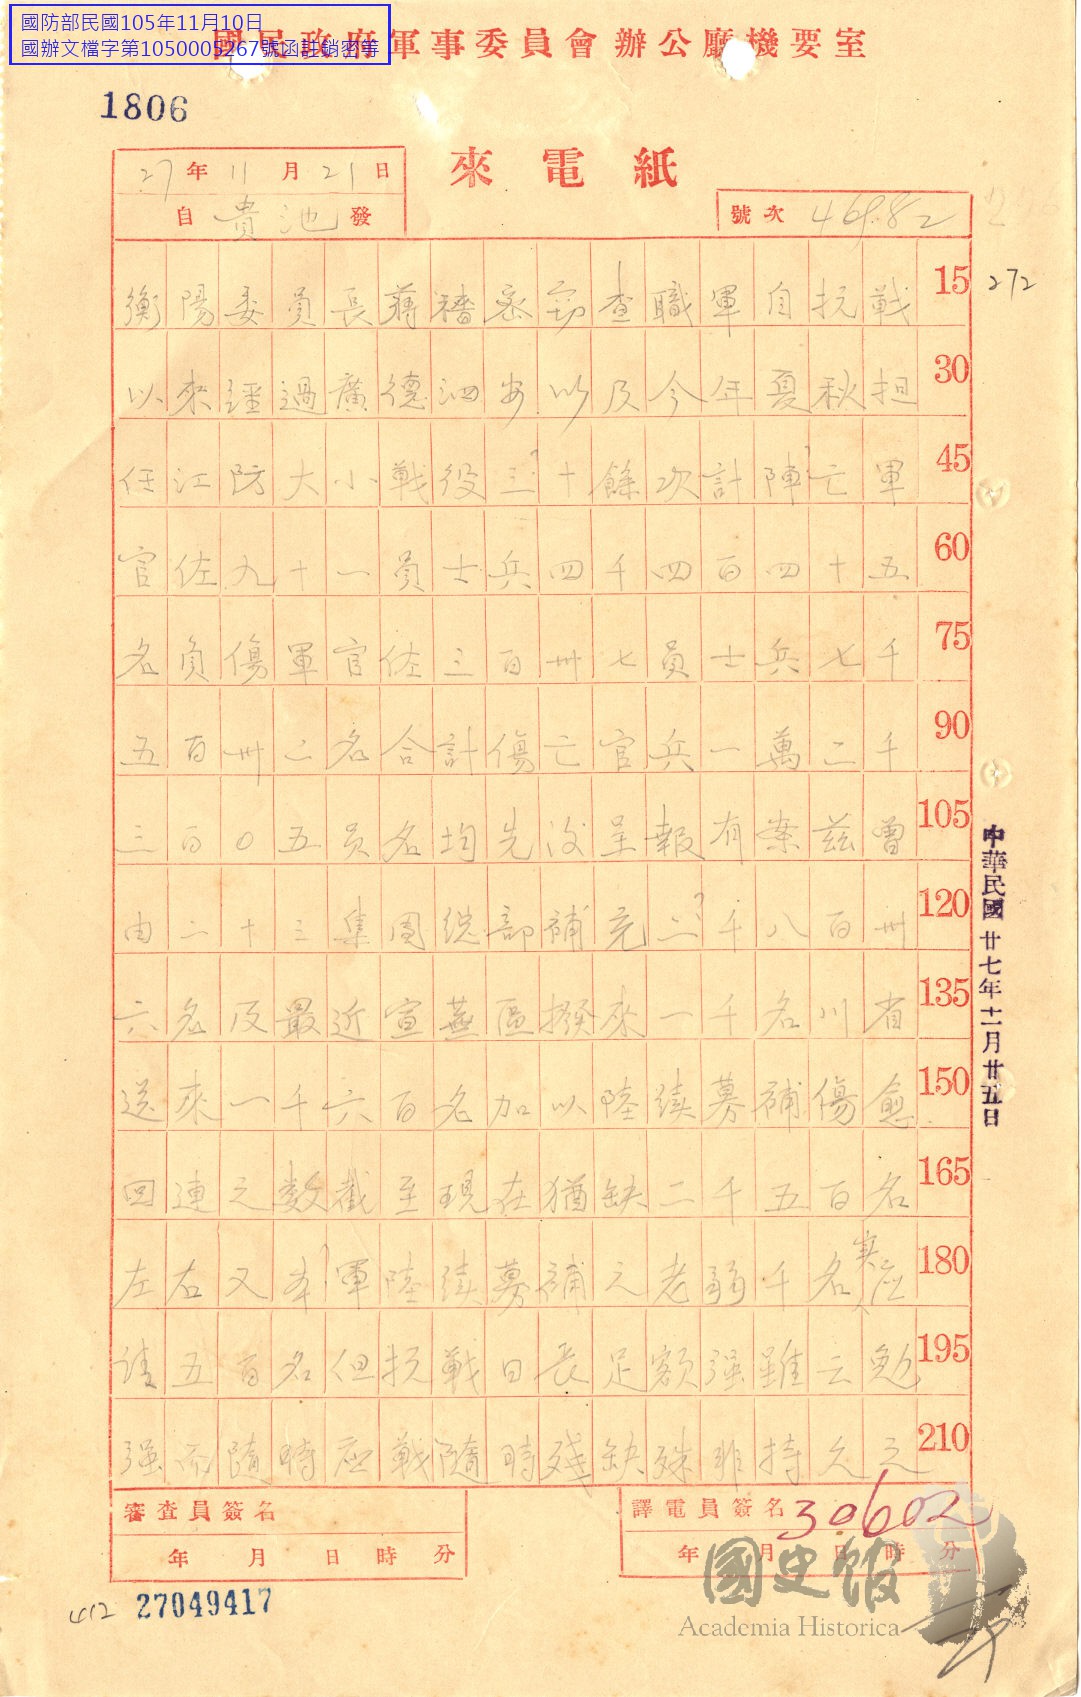 國防部民國105年11月10日
國辦文檔字第1050005267號函註銷密等
國民政府軍事委員會辦公廳機要室
1806
來電紙
27年11月21日
自貴池發
號次 46982
272
衡陽委員長蔣 密 查職軍自抗戰 15
以來經過廣德泗安以及今年夏秋担 30
任江防大小戰役三十餘次計陣亡軍 45
官佐九十一員士兵四千四百四十五 60
名負傷軍官佐三百卅七員士兵七千 75
五百卅二名合計傷亡官兵一萬二千 90
三百0五員名均先後呈報有案茲曾 105
由二十三集團總部補充二千八百卅 120
六名及最近宣蕪區撥來一千名川省 135
送來一千六百名加以陸續募補傷愈 150
回連之数截至現在猶缺二千五百名 165
左右又本軍陸續募補之老弱千名實应 180
請五百名但抗戰日長足額强雖云勉 195
强而隨時应戰隨時殘缺殊非持久之 210
中華民國廿七年十一月廿五日
審查員簽名
年月日時分
譯電員簽名 30602
年月日時分
412 27049417
國史館
Academia Historica